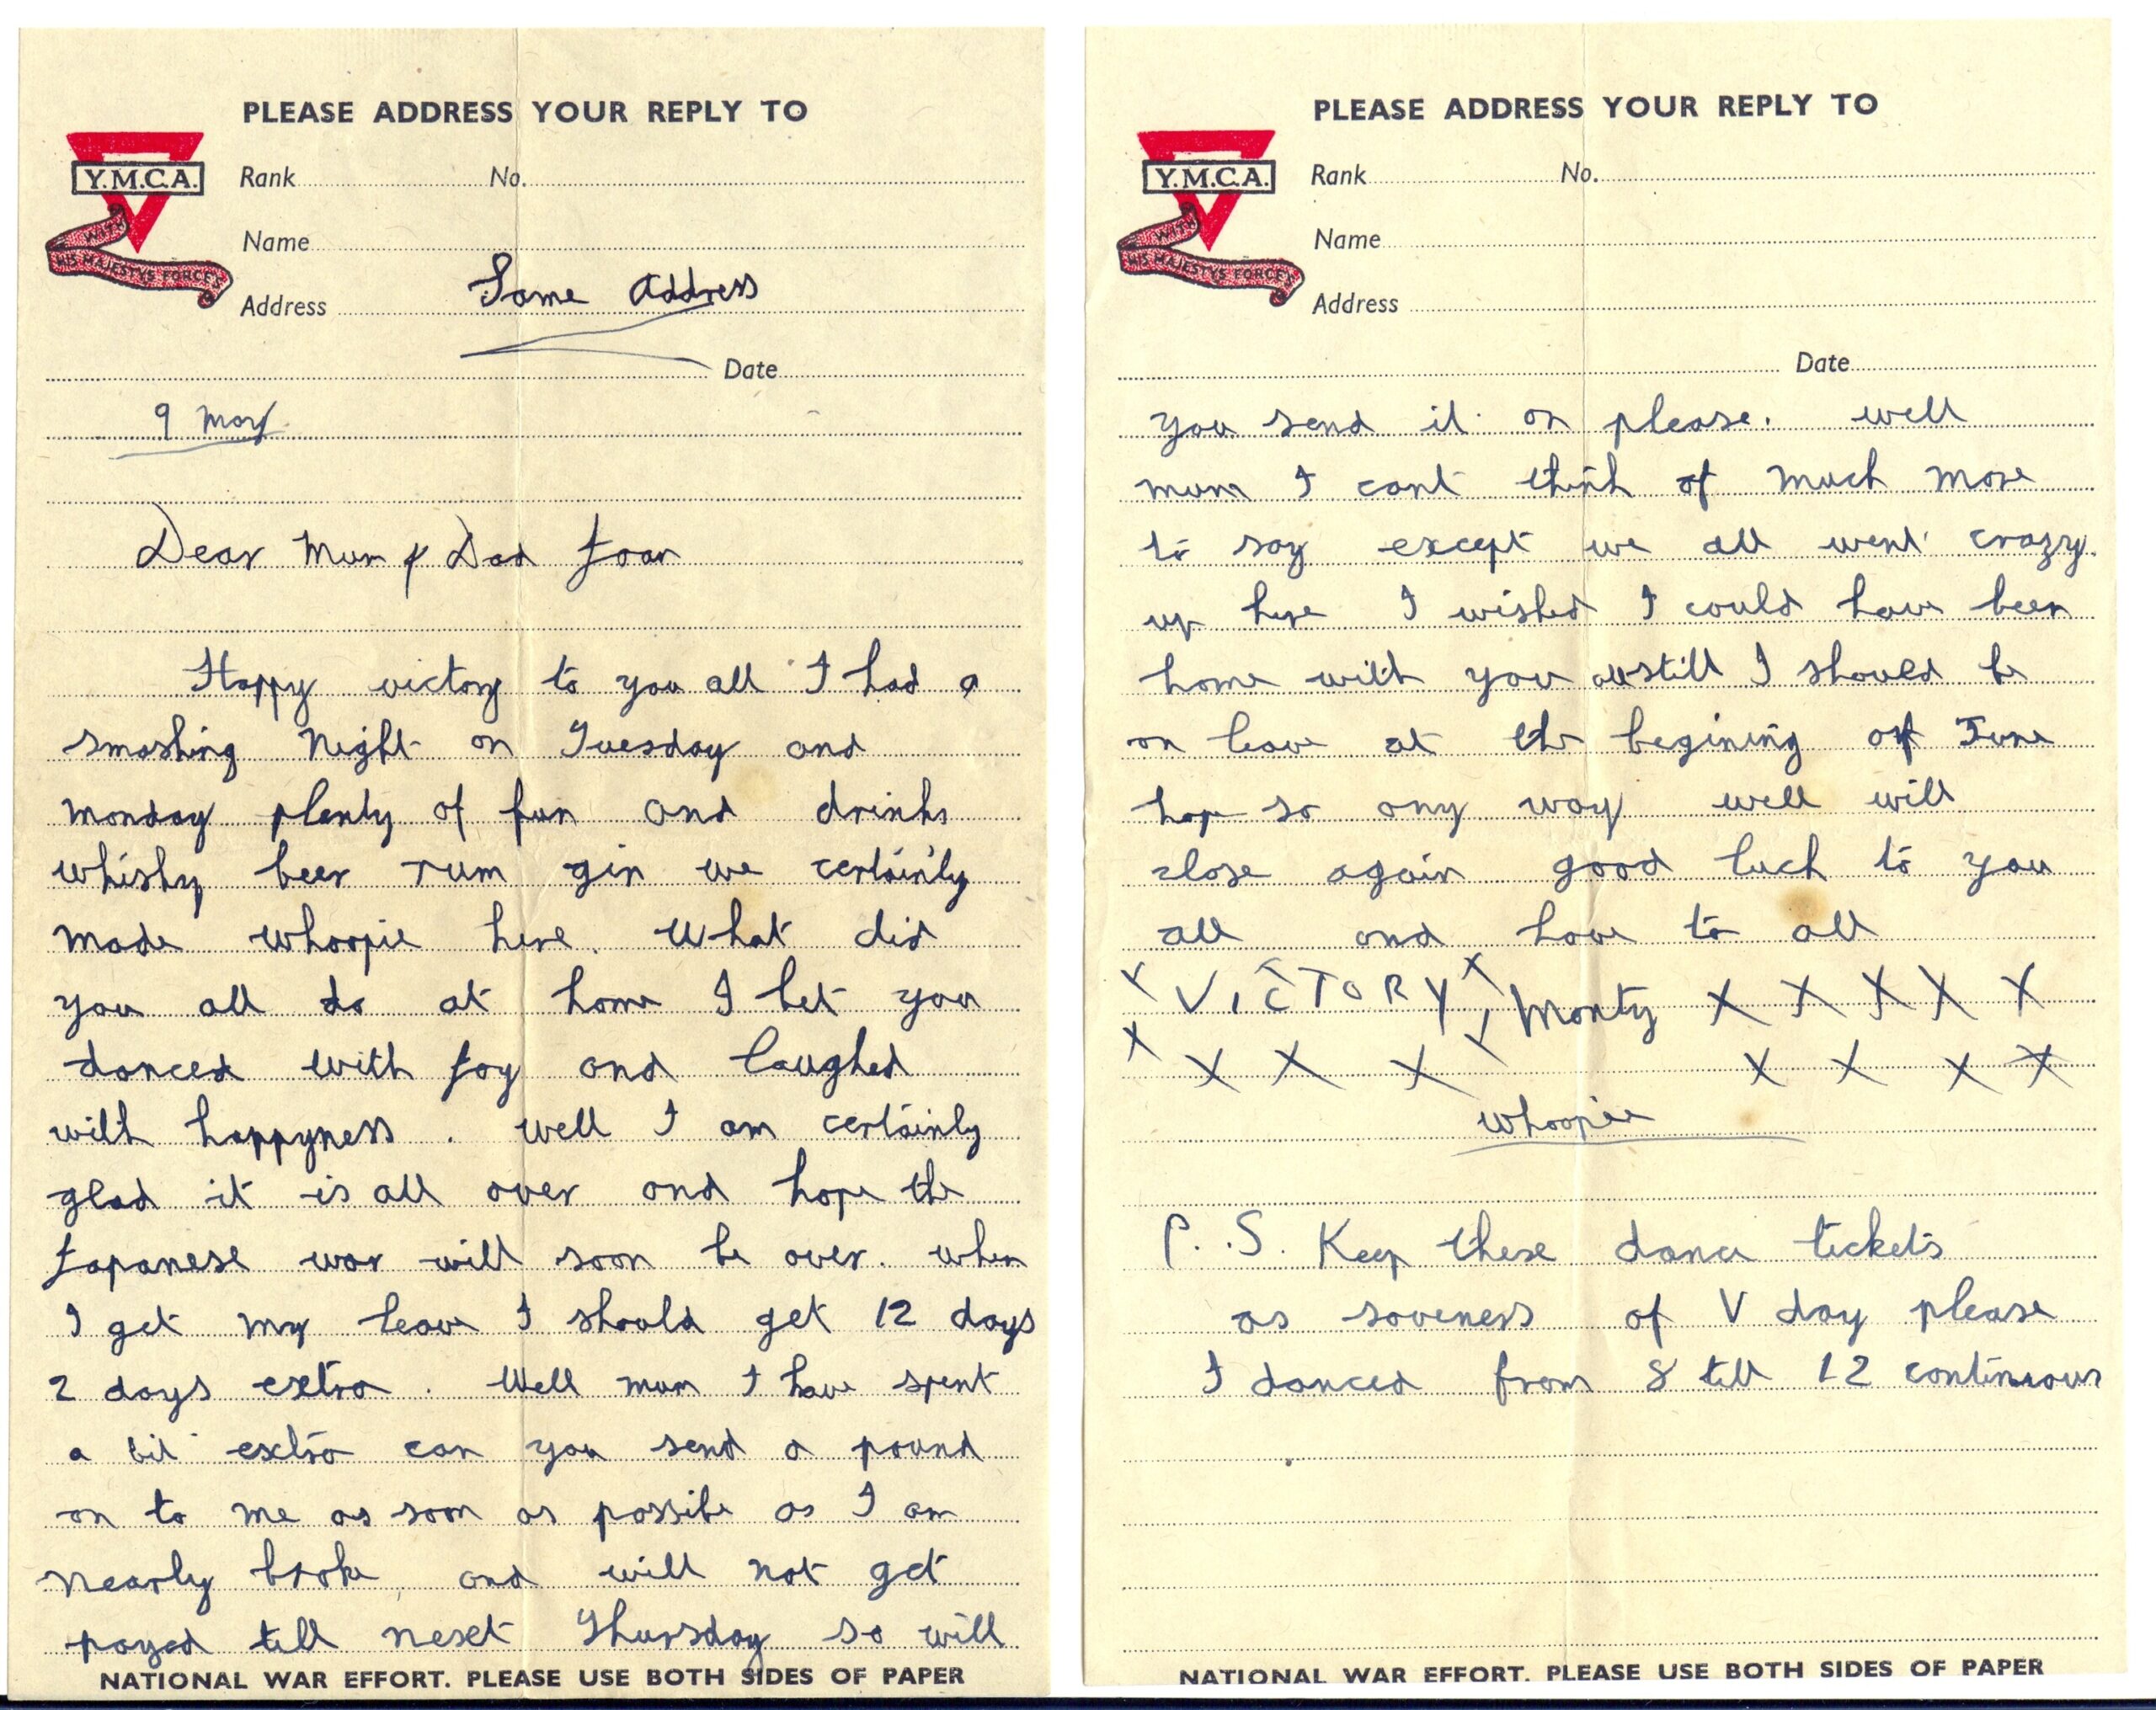 PLEASE ADDRESS YOUR REPLY TO
Y.M.C.A.
WITH
HIS MAJESTYS FORCES
Rank No.
Name
Address Same Address
Date
9 May
Dear Mum & Dad Joan
Happy victory to you all I had a
smashing Night on Tuesday and
Monday plenty of fun and drinks
whisky beer rum gin we certainly
made whoopie here. What did
you all do at home I bet you
danced with joy and laughed
with happyness. Well I am certainly
glad it is all over and hope the
Japanese war will soon be over. when
I get my leave I should get 12 days
2 days extra. Well mum I have spent
a bit extra can you send a pound
on to me as soon as possible as I am
nearly broke, and will not get
payed till next Thursday so will
NATIONAL WAR EFFORT. PLEASE USE BOTH SIDES OF PAPER
PLEASE ADDRESS YOUR REPLY TO
Y.M.C.A.
WITH
HIS MAJESTYS FORCES
Rank No.
Name
Address
Date
you send it on please. well
mum I cant think of much more
to say except we all went crazy.
up here I wished I could have been
home with you all still I should be
on leave at the begining of June
hope so any way well will
close again good luck to you
all and love to all
X VICTORY X Monty X X X X X
X X X X X X X X
whoopie
P.S. Keep these dance tickets
as soveness of V day please
I danced from 8 till 12 continuous
NATIONAL WAR EFFORT. PLEASE USE BOTH SIDES OF PAPER